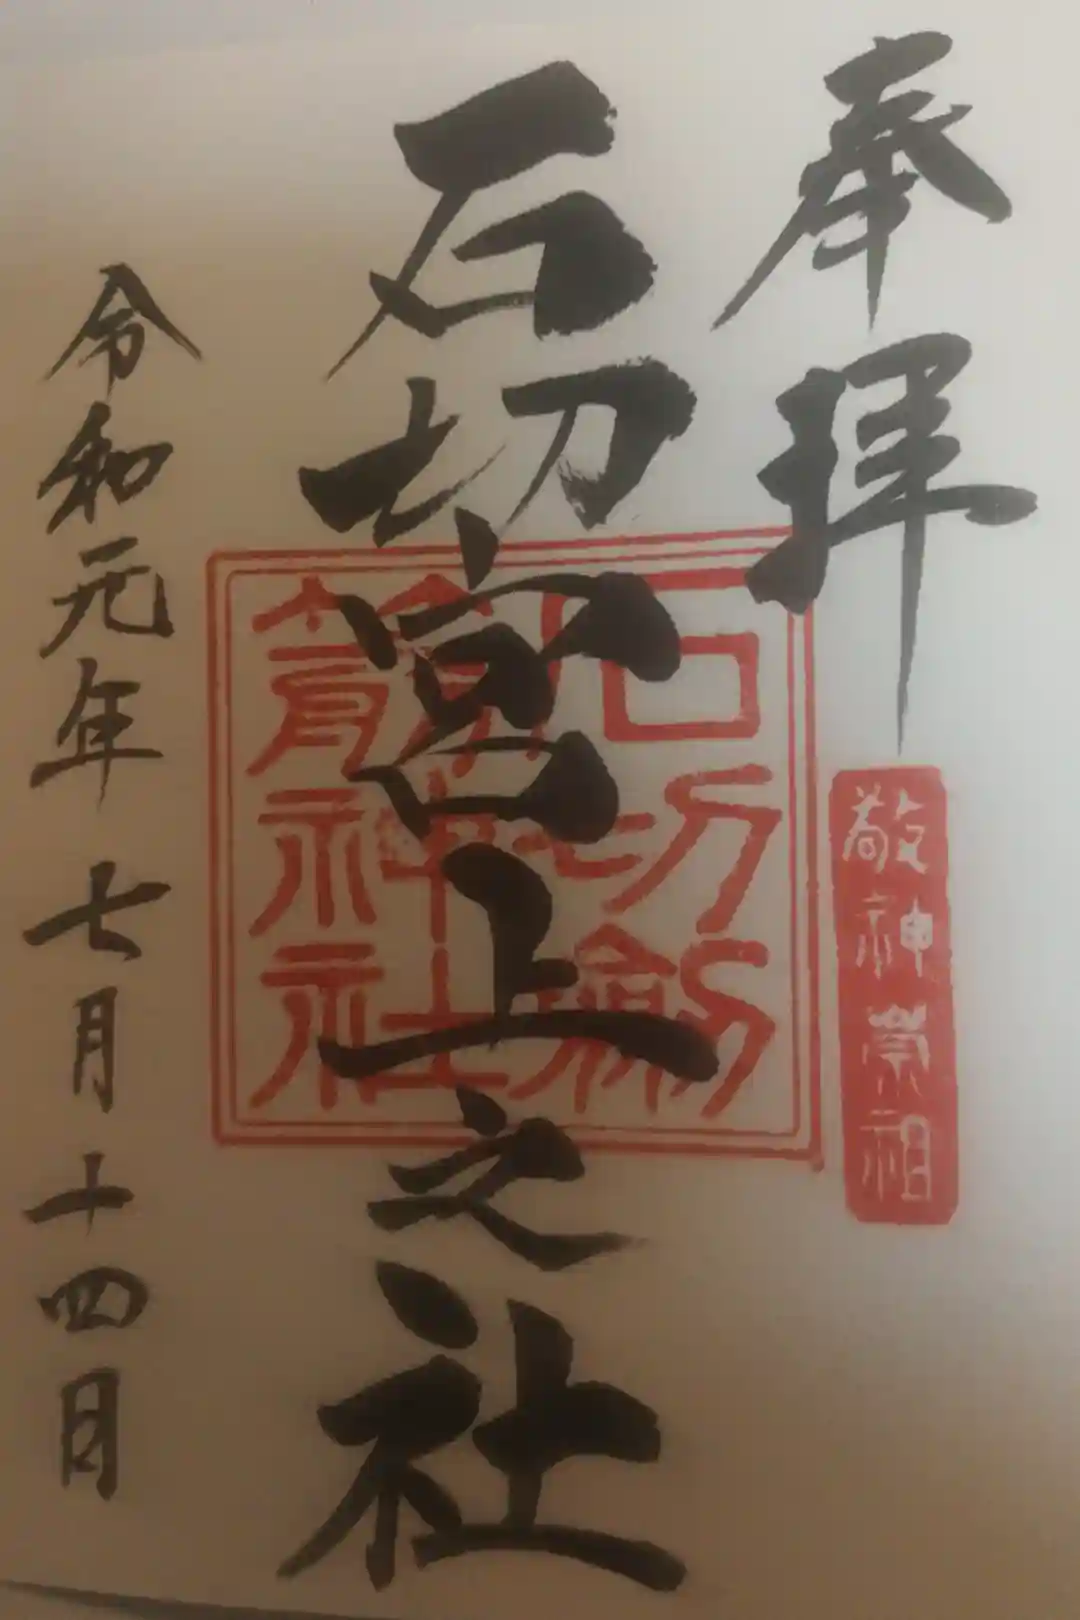 奉拝
敬神崇祖
石切宮上之社
石切劔
箭神社
令和元年七月十四日